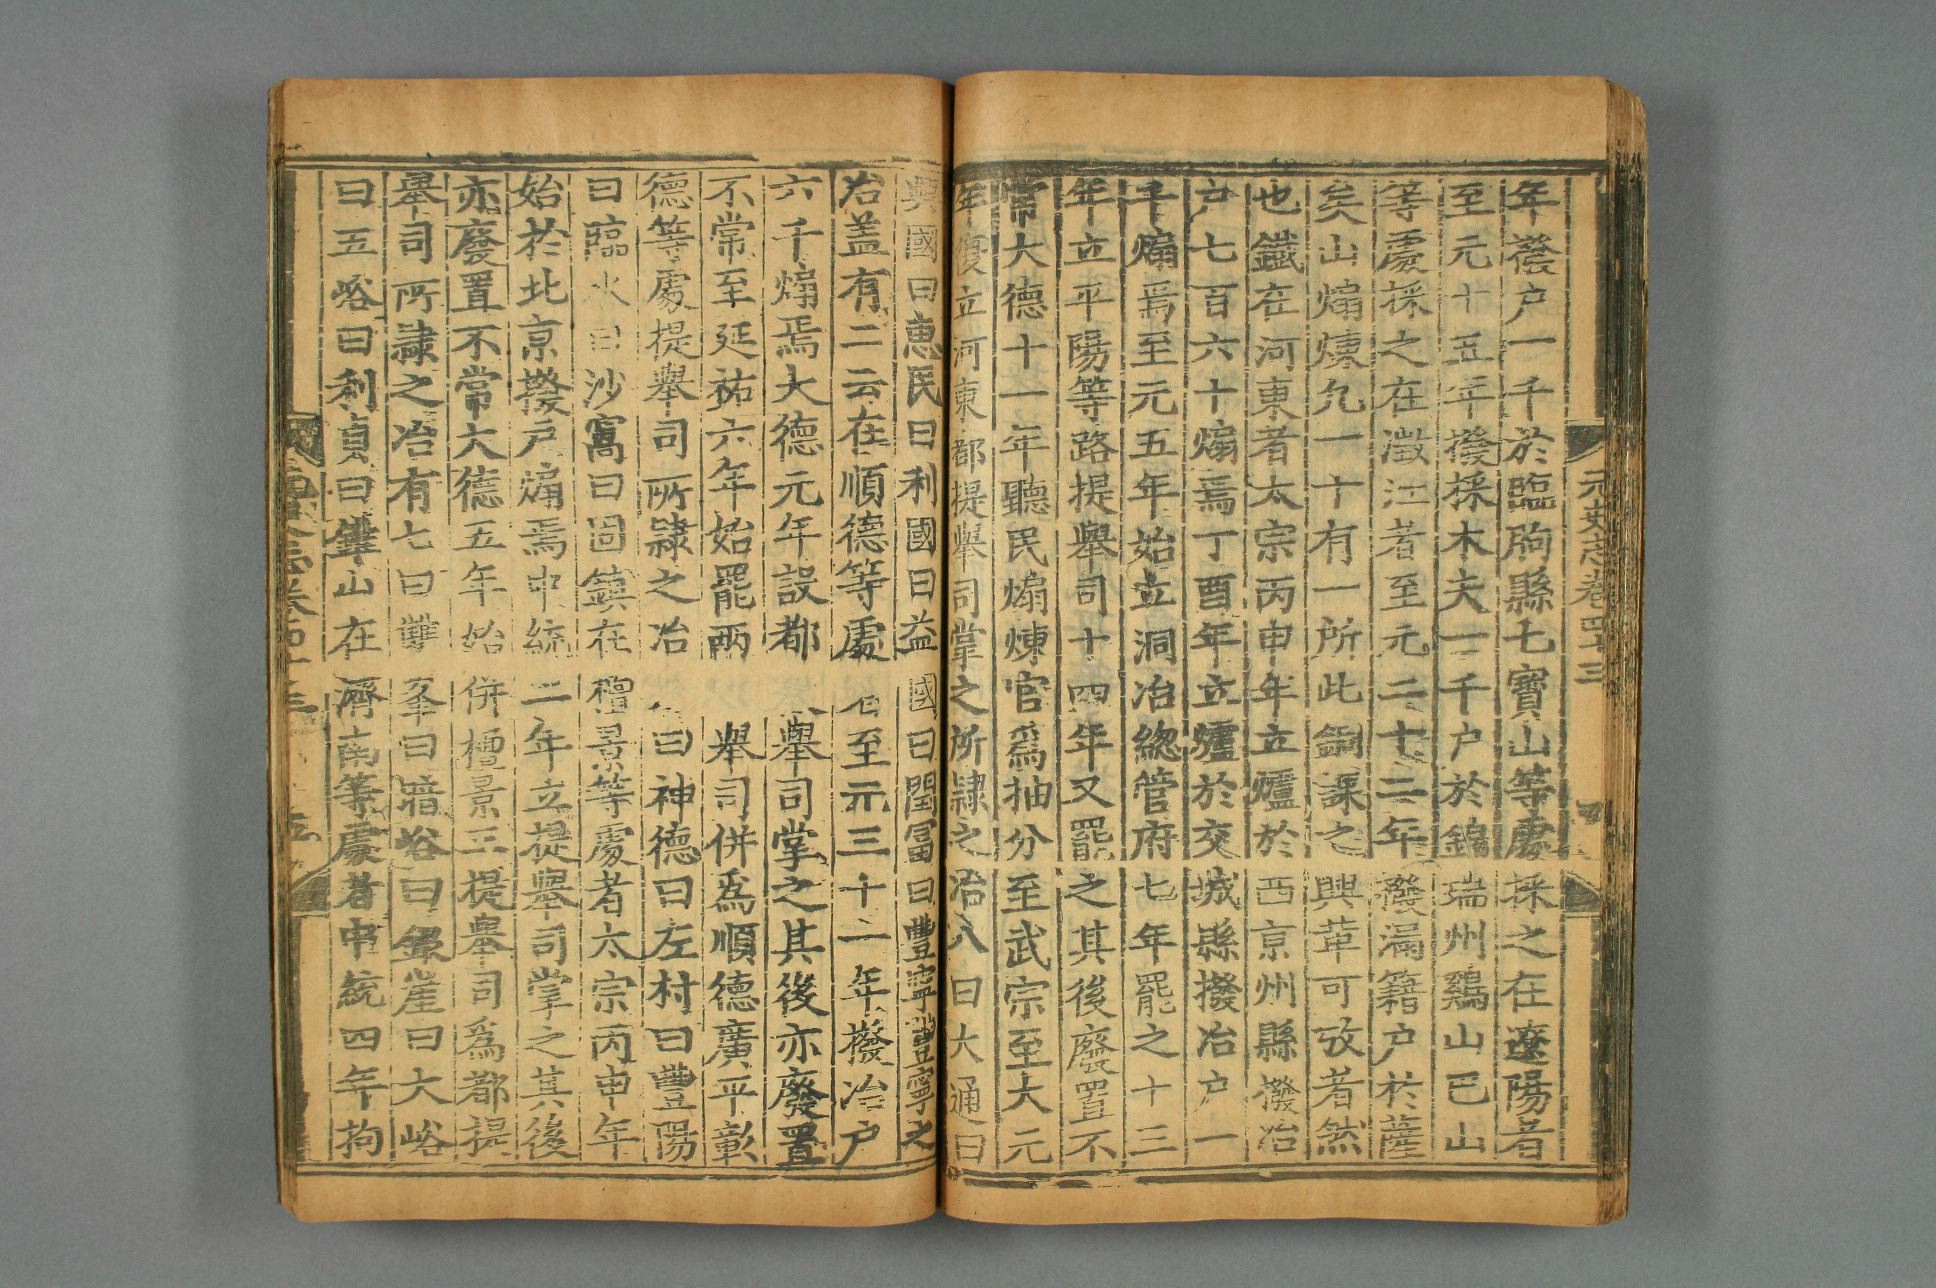 元史志卷四十三
年撥户一千於臨朐縣七寶山等處採之在遼陽者
至元十五年撥採木夫一千户於錦瑞州鷄山巴山
等處採之在澂江者至元二十二年撥漏籍户於薩
矣山煽煉九一十有一所此銅課之興革可攷者然
也鐵在河東者太宗丙申年立爐於西京州縣撥冶
户七百六十煽焉丁酉年立爐於交城縣撥冶户一
千煽焉至元五年始立洞冶總管府七年罷之十三
年立平陽等路提舉司十四年又罷之其後廢置不
常大德十一年聽民煽煉官爲抽分至武宗至大元
年復立河東都提舉司掌之所隷之冶八曰大通曰
興國曰惠民曰利國曰益國曰閏冨曰豐寧豐寧之
冶盖有二云在順德等處 至元三十二年撥冶户
六千煽焉大德元年設都 舉司掌之其後亦廢置
不常至延祐六年始罷兩 舉司併爲順德廣平彰
德等處提舉司所隷之冶 曰神德曰左村曰豐陽
曰臨水曰沙窩曰固鎮在檀景等處者太宗丙申年
始於北京撥户煽焉中統二年立提舉司掌之其後
亦廢置不常大德五年始併檀景三提舉司爲都提
舉司所隷之冶有七曰雙峯曰暗峪曰銀崖曰大峪
曰五峪曰利貞曰錐山在濟南等處者中統四年拘